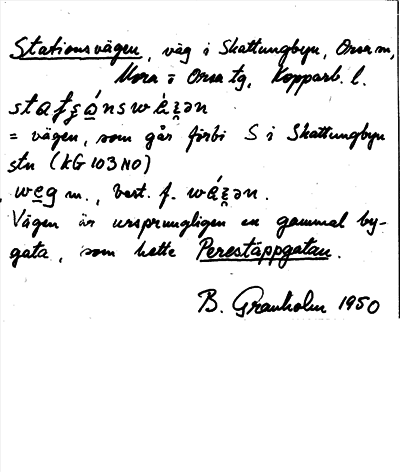 Stationsvägen, väg i Skattungbyn, Orsa sn,
Mora o Orsa tg, Kopparb. l.
= vägen, som går förbi S i Skattungbyn
stn (KG 103 NO)
weg m., best. f.
Vägen är ursprungligen en gammal by-
gata, som hette Perestäppgatan.
B. Granholm 1950